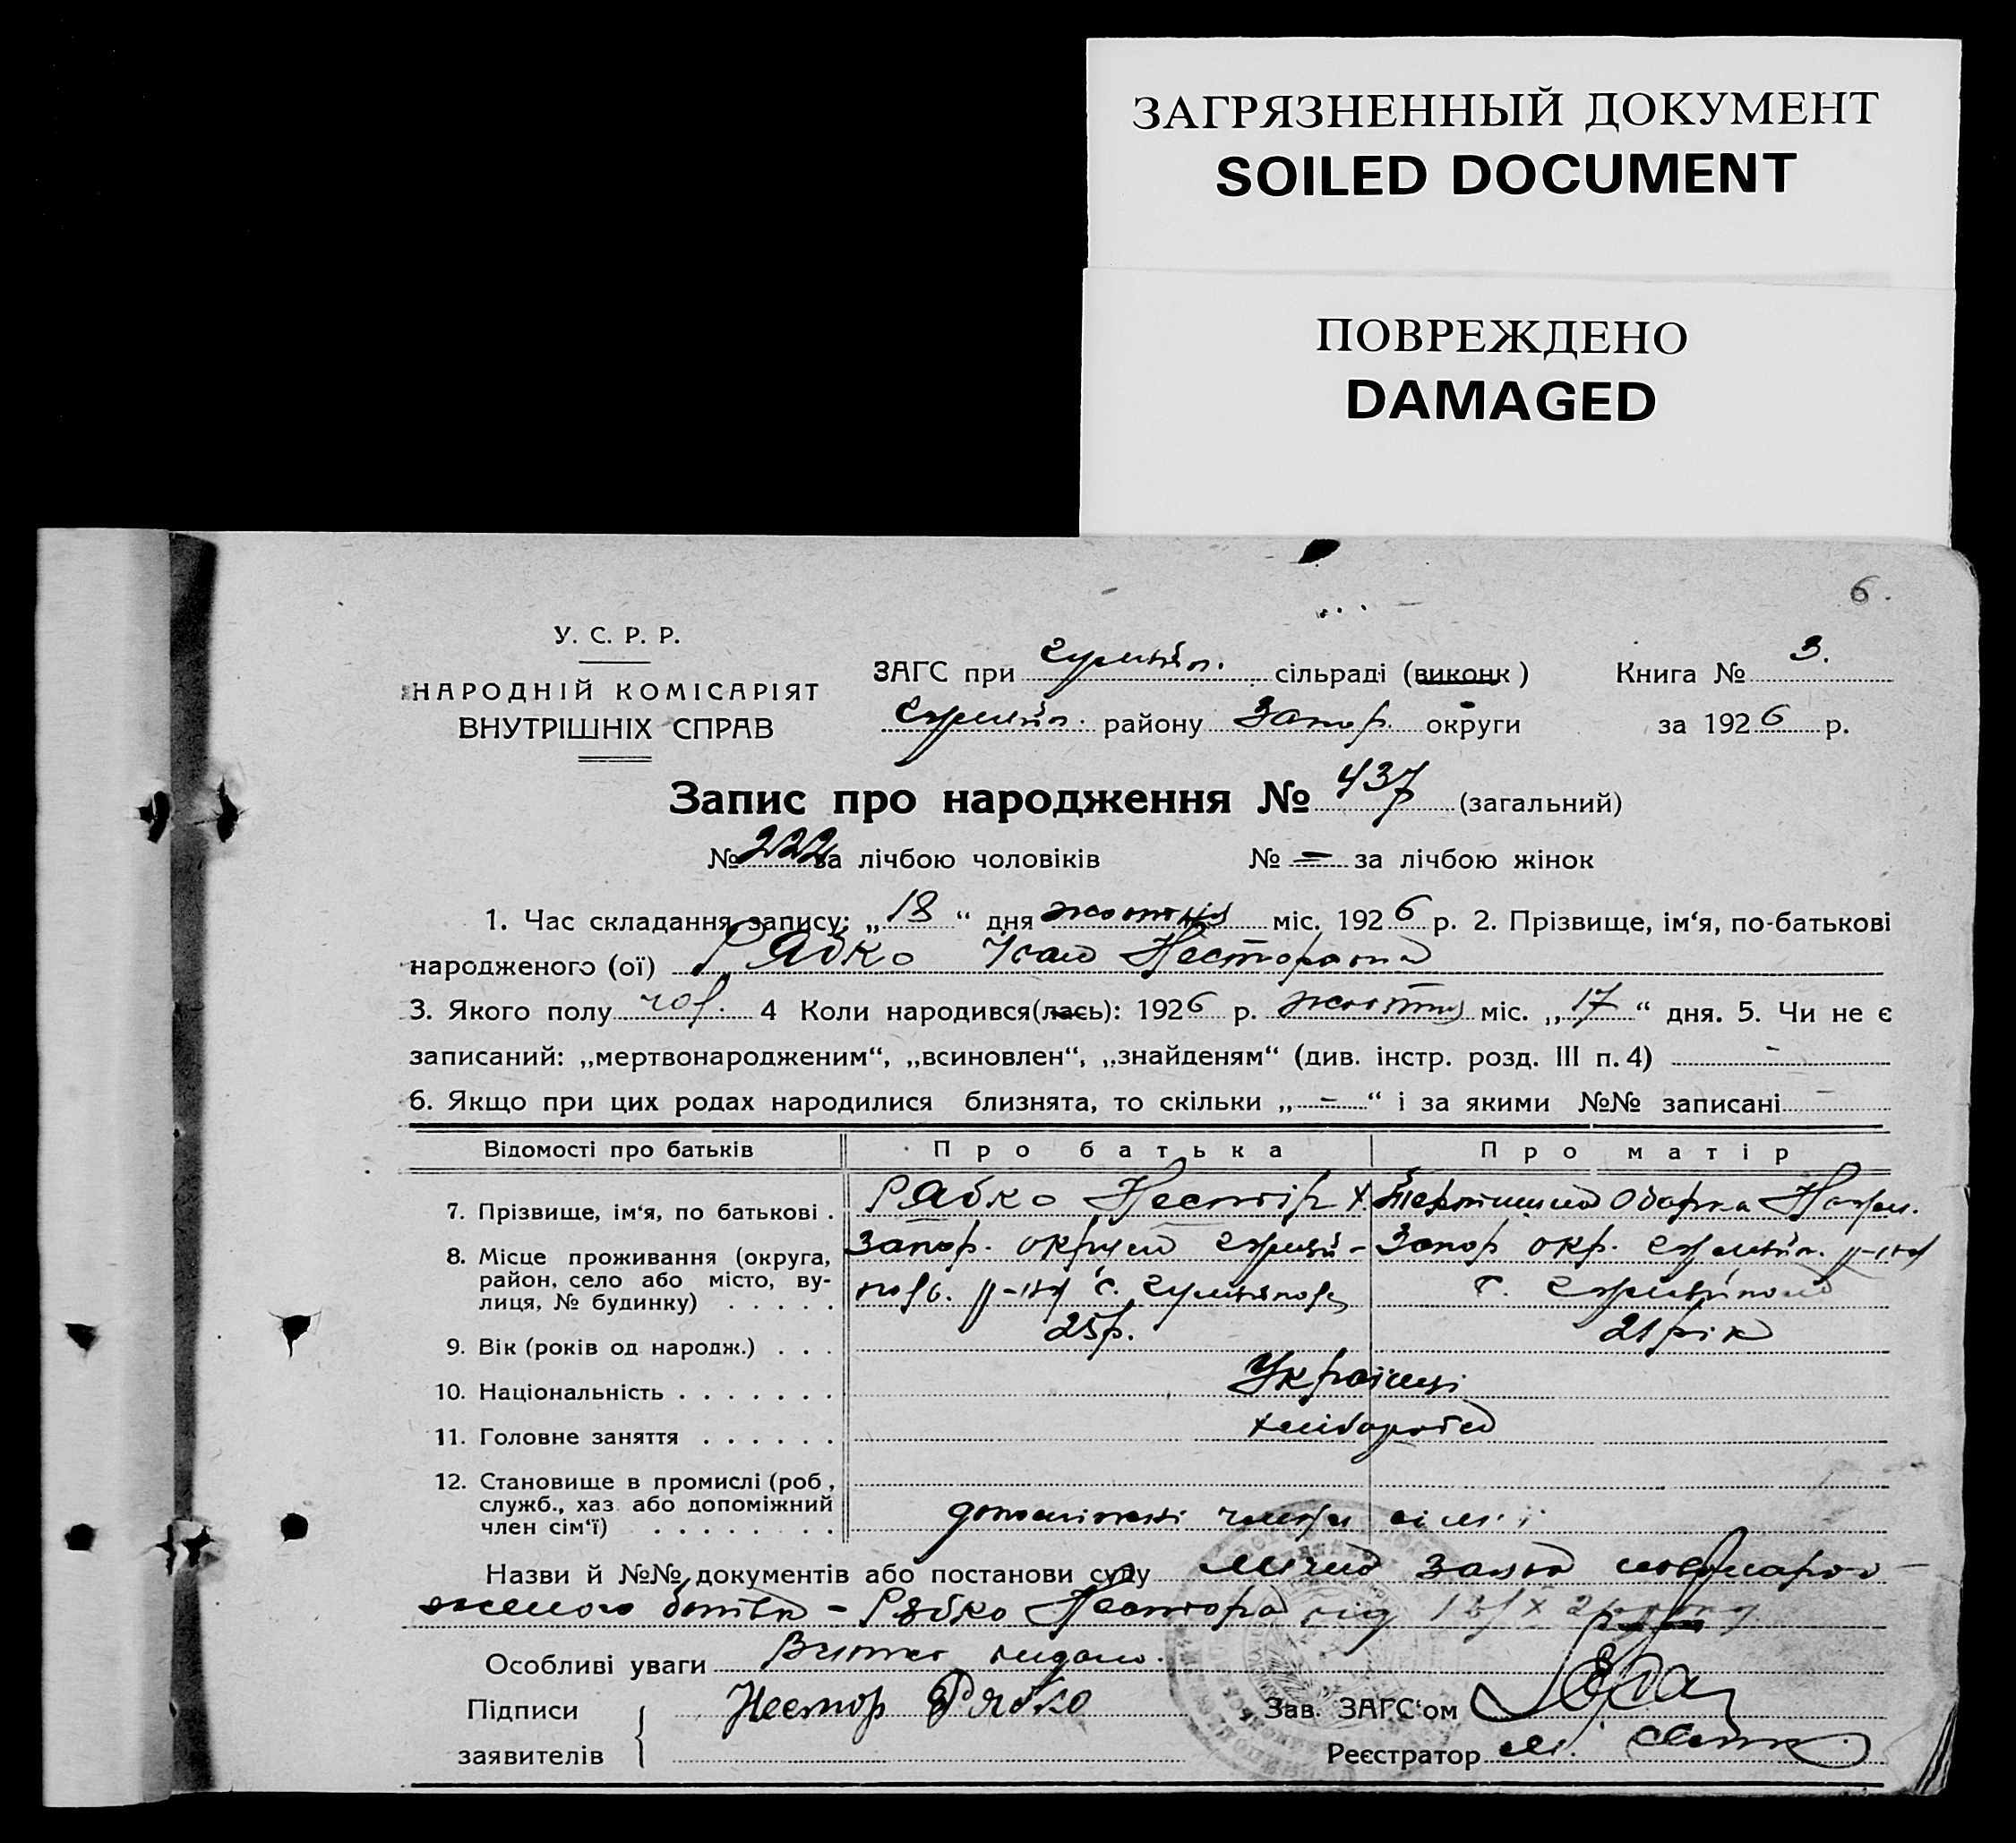 ЗАГРЯЗНЕННЫЙ ДОКУМЕНТ
SOILED DOCUMENT
ПОВРЕЖДЕНО
DAMAGED
6.
У. С. Р. Р.
НАРОДНІЙ КОМІСАРІЯТ
ВНУТРІШНІХ СПРАВ
ЗАГС при сільраді (виконк)
району Запор. округи
Книга № 3.
за 1926 р.
Запис про народження № 437 (загальний)
№ 222 за лічбою чоловіків № – за лічбою жінок
1. Час складання запису: „18“ дня жовтня міс. 1926 р. 2. Прізвище, ім‘я, по-батькові
народженого (ої) Рябко Іван Несторович
3. Якого полу чол. 4 Коли народився(лась): 1926 р. жовтня міс. „17“ дня. 5. Чи не є
записаний: „мертвонародженим“, „всиновлен“, „знайденям“ (див. інстр. розд. III п. 4) -
6. Якщо при цих родах народилися близнята, то скільки „-“ і за якими №№ записані -
Відомості про батьків Про батька Про матір
7. Прізвище, ім‘я, по батькові . Рябко Нестір Х. Одарка
8. Місце проживання (округа, район, село або місто, вулиця, № будинку) . . . . . Запор. округа р-ну с. Запор окр. р-ну с.
9. Вік (років од народж.) . . . 25 р. 21 рік
10. Національність . . . . . . . Українці
11. Головне заняття . . . . . . хлібороби
12. Становище в промислі (роб, служб., хаз. або допоміжний член сім‘ї) . . . . . . . . допоміжні члени сім'ї
Назви й №№ документів або постанови суду заява новонарод-
женого батька - Рябко Нестора від
Особливі уваги Витяг видано.
Підписи
заявителів
Нестор Рябко
Зав. ЗАГС‘ом
Реєстратор